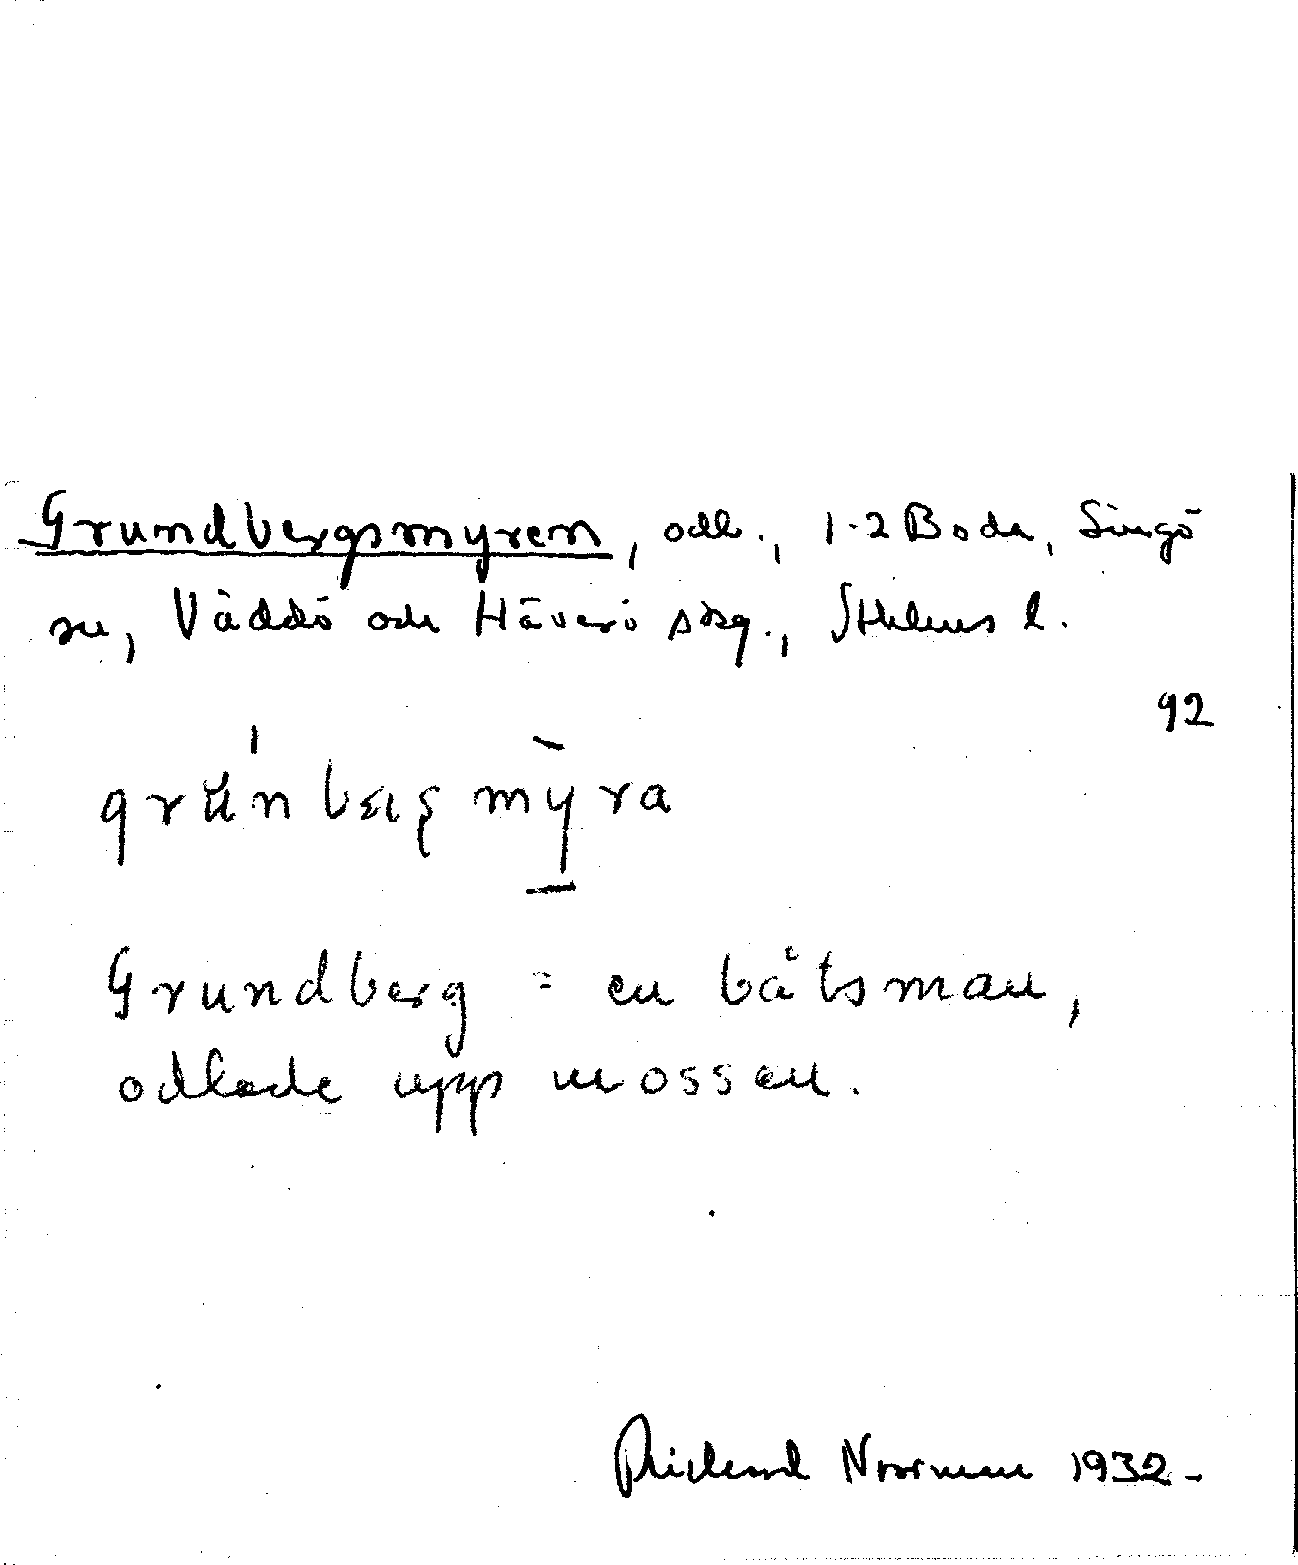 Grundbergsmyren, odl., 1-2 Boda, Singö
sn, Väddö och Häverö skg., Sthlms l.
92
Grundberg = en båtsman,
odlade upp mossen.
Rickard Norrman 1932-